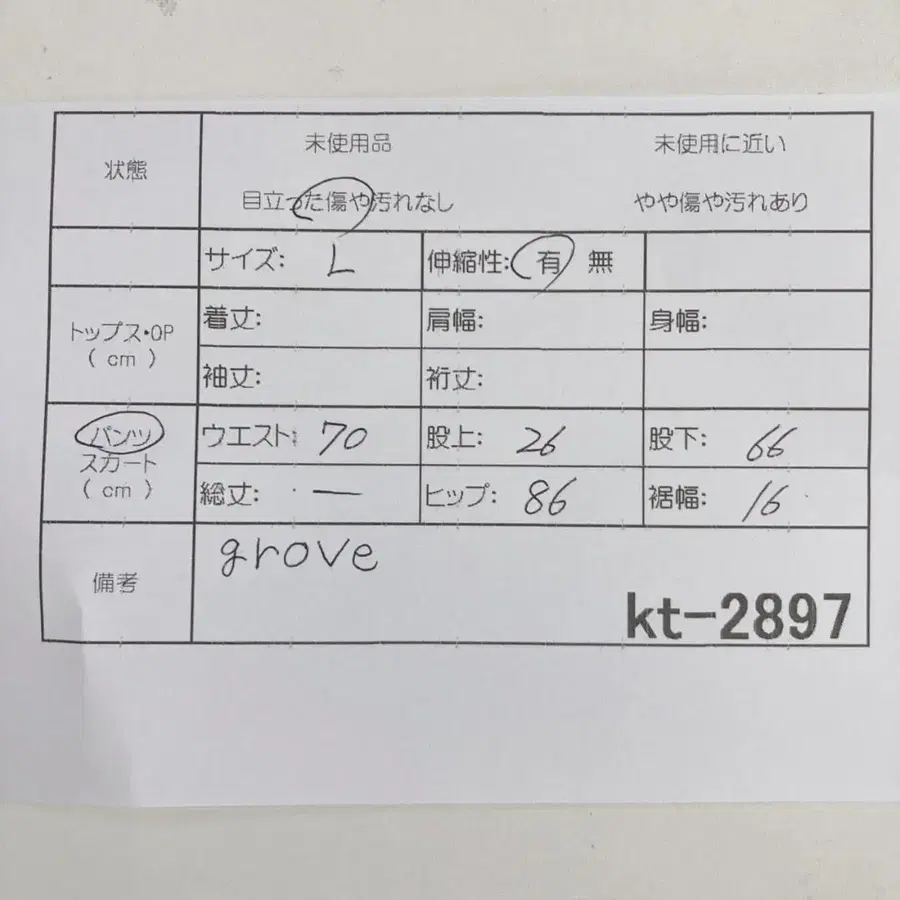 状態
未使用品 未使用に近い
目立った傷や汚れなし やや傷や汚れあり
サイズ: L 伸縮性: 有 無
トップス・OP
( cm )
着丈: 肩幅: 身幅:
袖丈: 裄丈:
パンツ
スカート
( cm )
ウエスト: 70 股上: 26 股下: 66
総丈: — ヒップ: 86 裾幅: 16
備考
grove
kt-2897